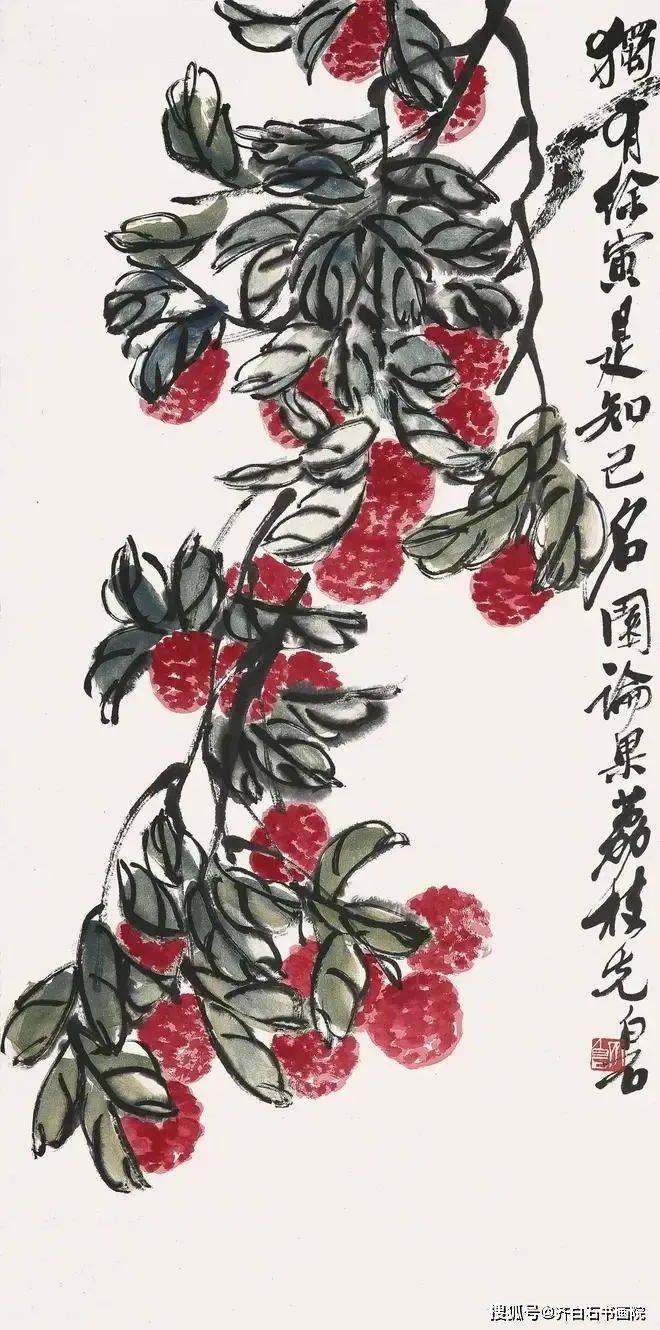 獨有徐寅是知己名園論果荔枝先白石
搜狐号@齐白石书画院